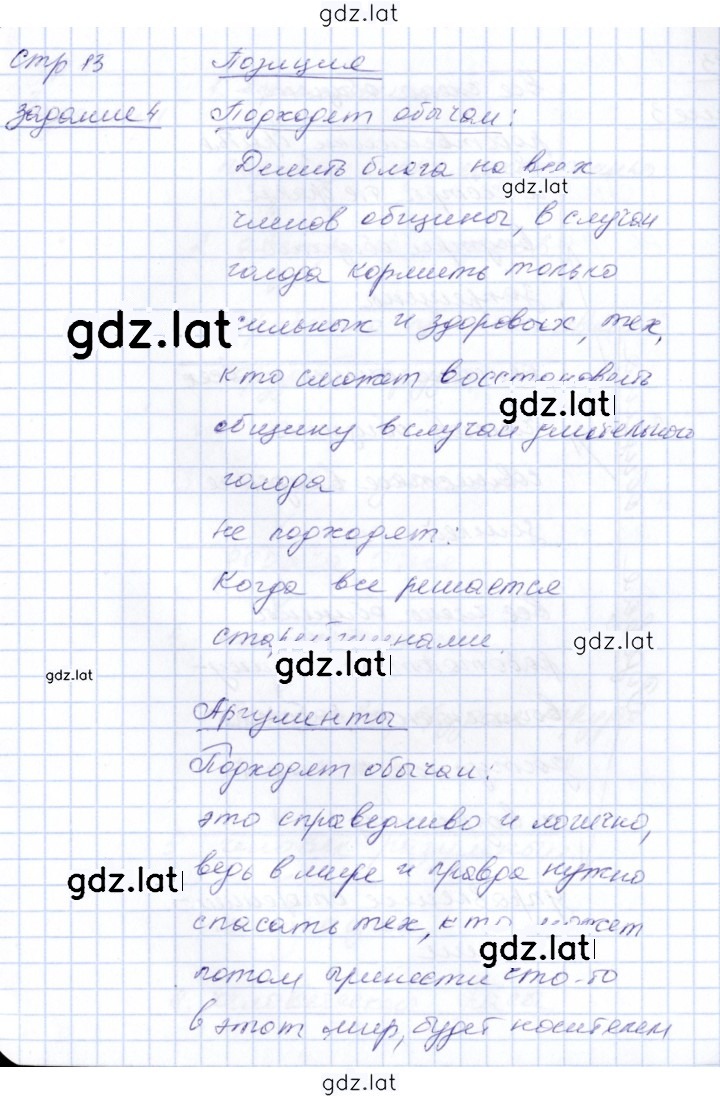 gdz.lat
стр 13 Позиция
задание 4 Подходят обычаи:
Делить блага на всех
gdz.lat
членов общины, в случаи
голода кормить только
gdz.lat
сильных и здоровых, тех,
кто сможет восстановить
gdz.lat
общину в случаи длительного
голода
не подходят:
Когда все решается
старейшинами.
gdz.lat
gdz.lat
gdz.lat
Аргументы
Подходят обычаи:
это справедливо и логично,
ведь в мире и правда нужно
gdz.lat
спасать тех, кто может
gdz.lat
потом принести что-то
в этот мир, будет носителем
gdz.lat